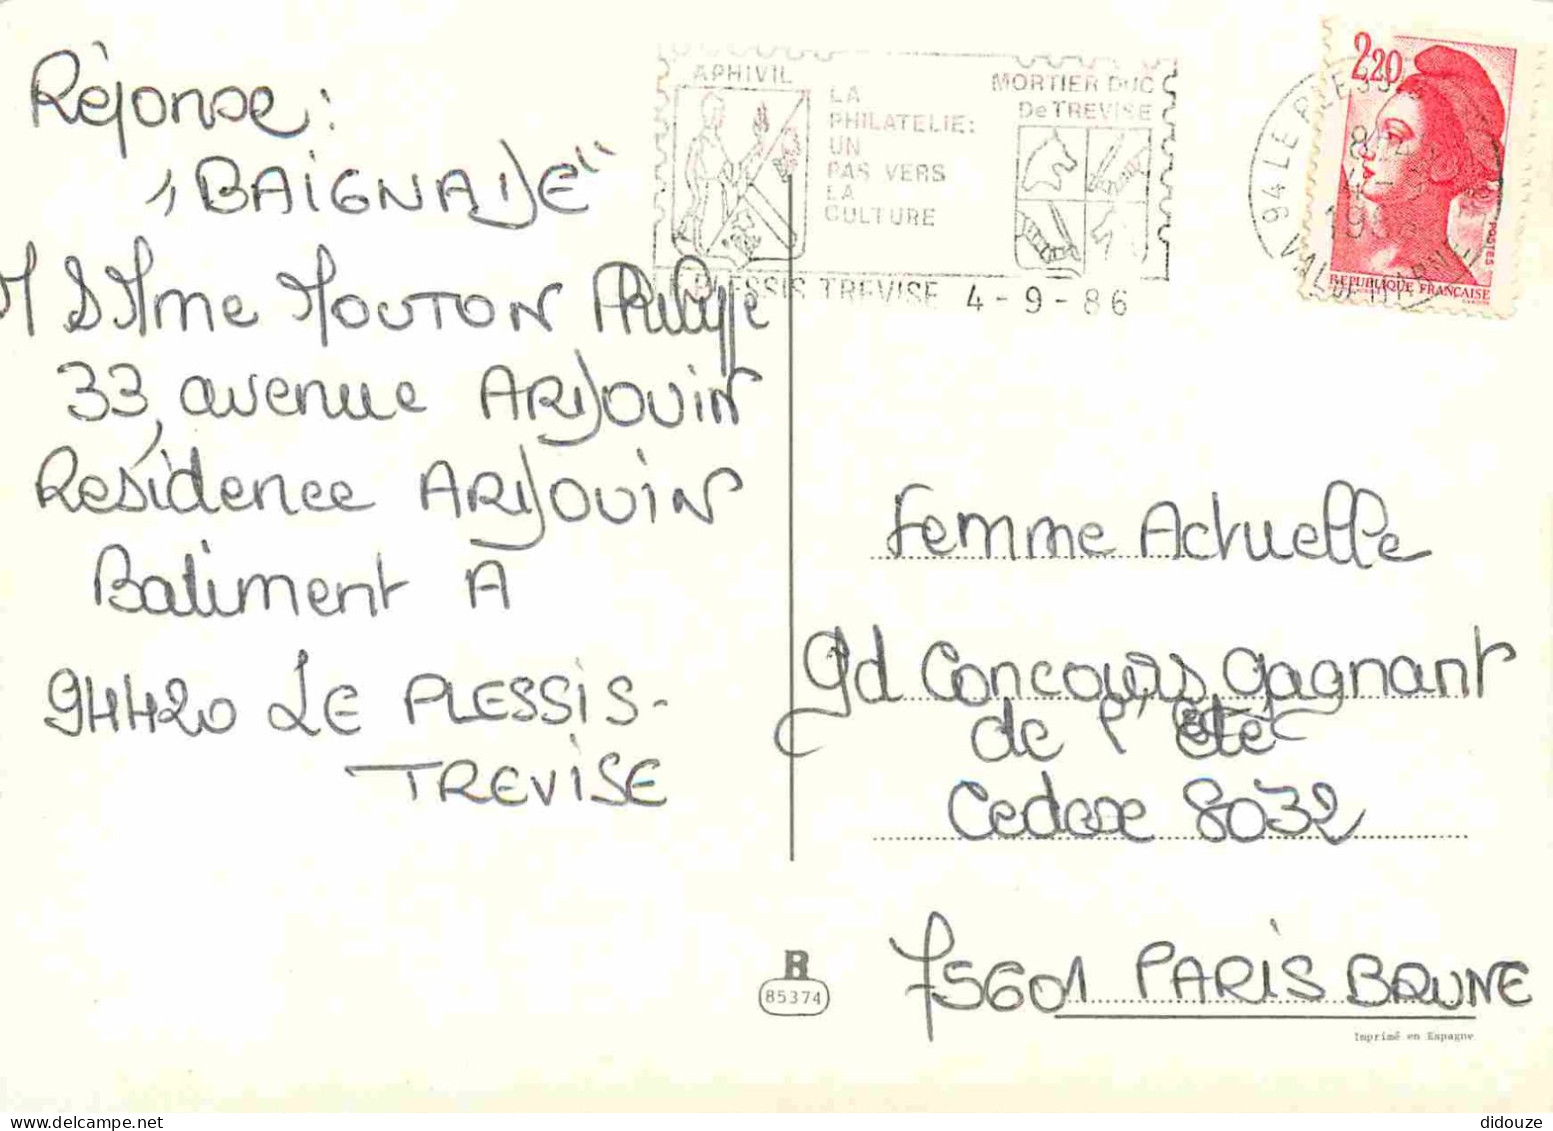 Réponse :
"BAIGNADE"
M & Mme MOUTON Philippe
33, avenue ARDOUIN
Residence ARDOUIN
Batiment A
94420 LE PLESSIS-
TREVISE
APHIVIL
LA
PHILATELIE:
UN
PAS VERS
LA
CULTURE
MORTIER DUC
De TREVISE
PLESSIS TREVISE 4-9-86
94 LE PLESSIS
VAL DE MARNE
2,20
POSTES
REPUBLIQUE FRANÇAISE
Femme Actuelle
gd Concours gagnant
de l'été
Cedex 8032
75601 PARIS BRUNE
R
85374
Imprimé en Espagne
didouze